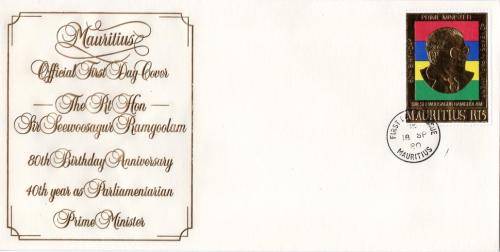 Mauritius
Official First Day Cover
The Rt Hon
Sir Seewoosagur Ramgoolam
80th Birthday Anniversary
40th year as Parliamentarian
Prime Minister
PRIME MINISTER
SIR SEEWOOSAGUR RAMGOOLAM
MAURITIUS R15
FIRST
ISSUE
18 SP
80
MAURITIUS